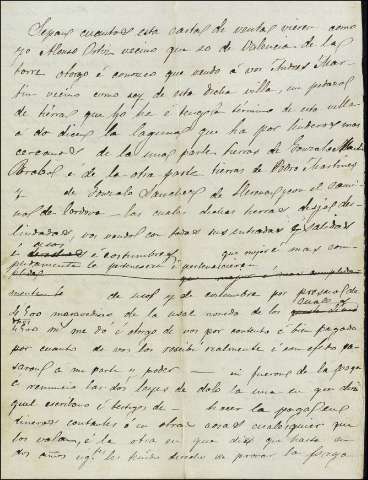 Sepan cuantos esta carta de venta vieren como
yo Alonso Ortiz vecino que so de Valencia de la
torre otorgo é conosco que vendo á vos Andres Mar-
tin vecino como soy de esta dicha villa, un pedazo
de tierra que yo he é tengo á término de esta villa
a do dicen la laguna que ha por linderos mas
cercanos de la una parte tierras de Gonzalo
é de la otra parte tierras de Pedro Martinez
y de Gonzalo Sanchez de el cami-
no de las cuales dichas tierras des-
lindadas, vos vendo con todas sus entradas é salidas
é usos é costumbres que mejor é mas com-
plidamente le pertenescen é
mente de usos y de costumbre por precio de
maravedis de la usal moneda de los cuales
me do é otorgo de vos por contento é bien pagado
por cuanto de vos los recibí realmente é con efecto pa-
saron á mi parte y poder — en fuerons de la paga
é renuncio las dos leyes de dolo la una en que diz
quel escribano é testigos de — hacer la paga en
dineros contantes é en otras cosas cualesquier que
los valan, é la otra en que dize que hasta en
dos años de provar la paga